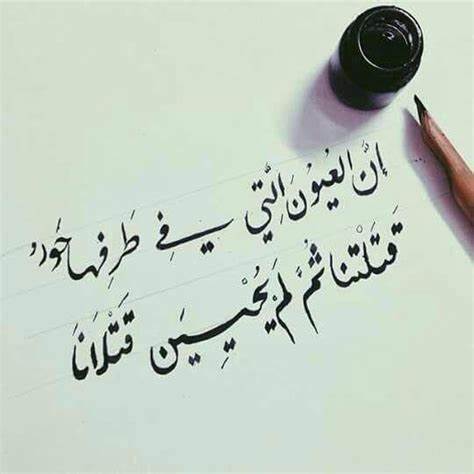 إنَّ العُيُونَ الَّتِي فِي طَرفِهَا حَوَرٌ
قَتَلْتنَا ثُمَّ لَمْ يُحْيِيْنَ قَتْلَانَا